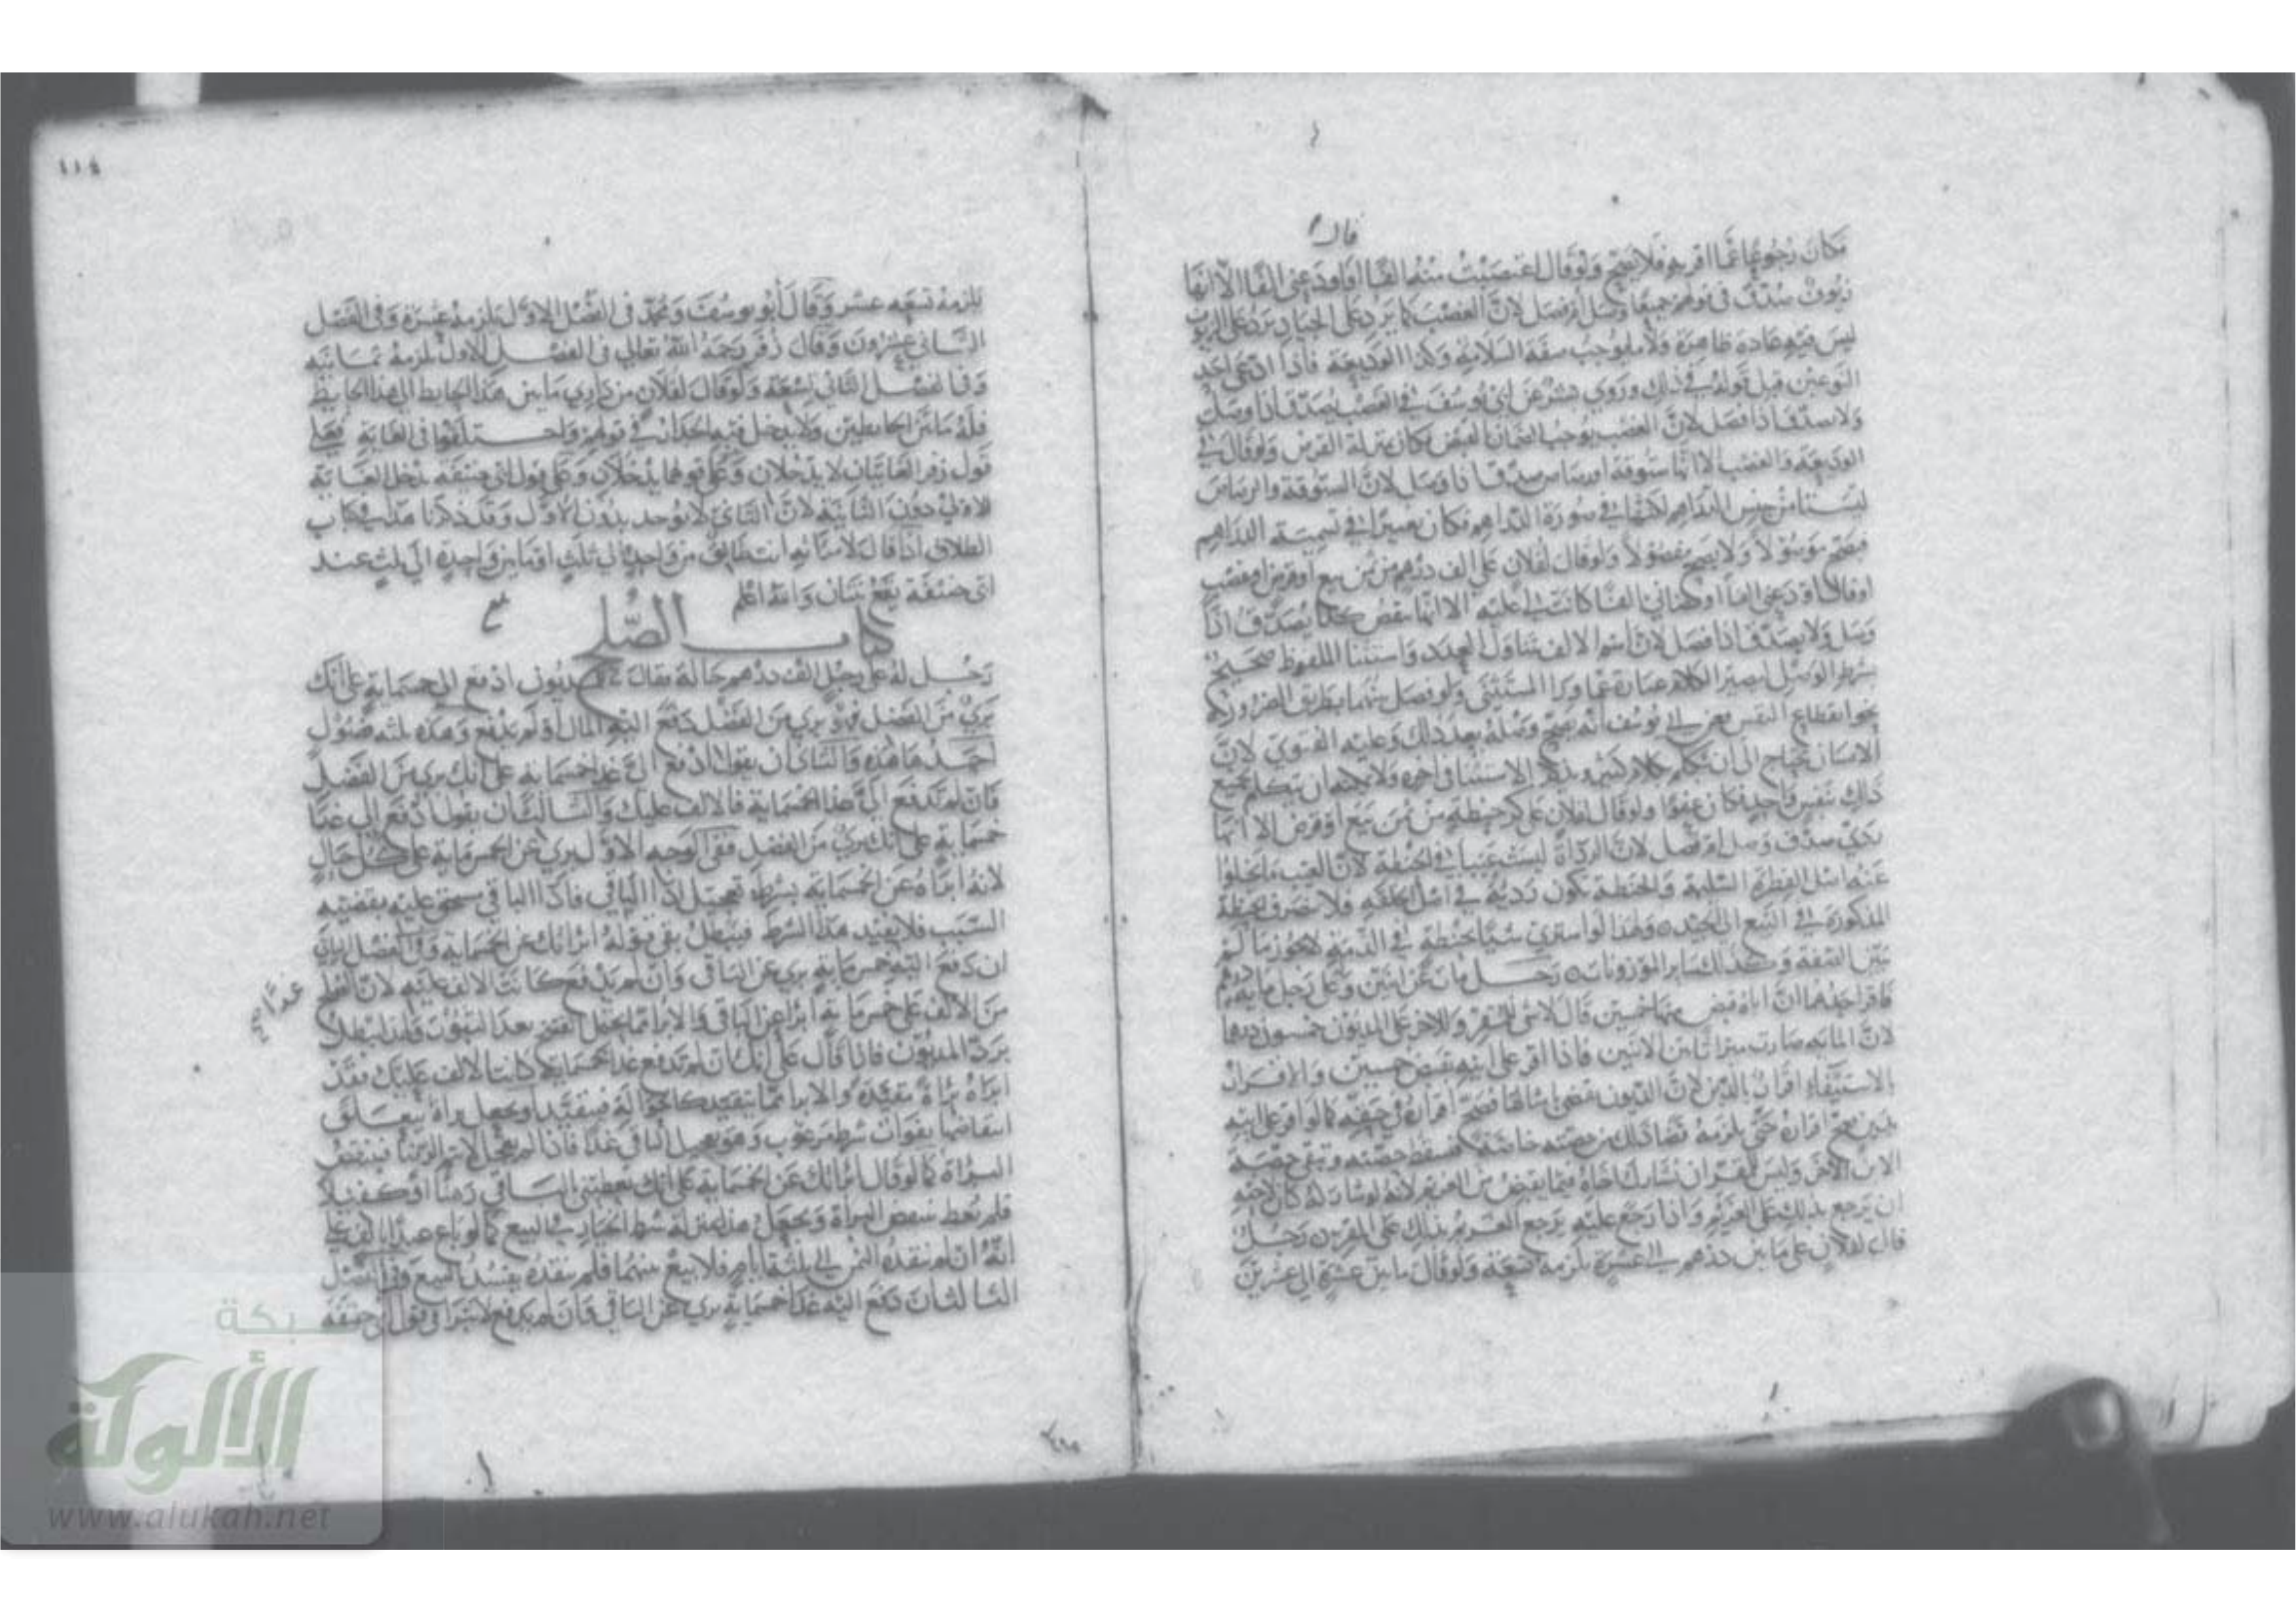 قال
فكان رجوعا عما اقر به فلا يصح ولو قال اغتصبت منه الفا او اودعني الفا الا انها
زيوف صدق في قولهم جميعا وصل ام فصل لان الغصب كما يرد على الجياد يرد على الزيوف
ليس فيه عادة ظاهرة ولا ما يوجب صفة السلامة وكذا الوديعة فاذا ادعى احد
النوعين قبل قوله في ذلك وروي بشر عن ابي يوسف في الغصب يصدق اذا وصل
ولا يصدق اذا فصل لان الغصب يوجب الضمان فكان بمنزلة القرض ولو قال في
الوديعة والغصب الا انها ستوقة او رصاص صدق اذا وصل لان الستوقة والرصاص
ليستا من جنس الدراهم لكنها في صورة الدراهم فكان في تسمية الدراهم
فيصح موصولا ولا يصح مفصولا ولو قال لفلان علي الف درهم من ثمن بيع او قرض او غصب
او قال اودعني الفا او الفا كانت عليه الا انها تنقص كذا يصدق اذا
وصل ولا يصدق اذا فصل لان اسم الالف تناول العدد واستثنا الملفوظ صحيح
بشرط الوصل ليصير الكلام عبارة عما ورا المستثنى ولو فصل بينهما بطريق الضرورة
نحو انقطاع النفس فعن ابي يوسف انه يصح وصله بعد ذلك وعليه الفتوى لان
الانسان يحتاج الى ان يتكلم بكلام كثير ويذكر الاستثنا في اخره ولا يمكنه ان يتكلم بجميع
ذلك بنفس واحد فكان عفوا ولو قال لفلان علي كر حنطة من ثمن بيع او قرض الا انها
ردي صدق وصل ام فصل لان الرداءة ليست عيبا في الحنطة لان العيب ما يخلوا
عنه اصل الفطرة السليمة والحنطة تكون ردية في اصل الخلقة فلا تنصرف الحنطة
المذكورة في البيع الى الجيدة ولهذا لو اشترى شيا بحنطة في الذمة لا يجوز ما لم
يبين الصفة وكذلك سائر الموزونات رجل مات عن ابنين وعلى رجل ماية درهم
فاقر احدهما ان اباه قبض منها خمسين قال لا شي للمقر وللاخر على المديون خمسون درهما
لان المائة صارت ميراثا بين الاثنين فاذا اقر على ابيه بقبض خمسين والاقرار
بالاستيفاء اقرار بالدين لان الديون تقضى بامثالها فصح اقراره في حقه كما لو اقر على ابيه
بدين صح اقراره حتى يلزمه قضا ذلك من حصته خاصة فسقط حصته وتبقى حصة
الابن الاخر وليس للمقر ان يشارك اخاه فيما يقبض من الغريم لانه لو شاركه كان لاخيه
ان يرجع بذلك على الغريم واذا رجع عليه يرجع الغريم بذلك على المقر من رجل
قال لفلان علي ما بين درهم الى عشرة يلزمه تسعة ولو قال ما بين عشرة الى عشرين
١١٤
يلزمه تسعة عشر وقال ابو يوسف ومحمد في الفصل الاول يلزمه عشرة وفي الفصل
الثاني عشرون وقال زفر رحمه الله تعالى في الفصل الاول يلزمه ثمانية
وفي الفصل الثاني تسعة ولو قال لفلان من داري ما بين هذا الحايط الى هذا الحايط
فله ما بين الحايطين ولا يدخل فيه الحدان في قولهم واختلفوا في الغاية فعلى
قول زفر الغايتان لا يدخلان وعلى قولهما يدخلان وعلى قول ابي حنيفة تدخل الغاية
الاولى دون الثانية لان الثاني لا يوجد بدون الاول وقد ذكرنا هذا في كتاب
الطلاق اذا قال لامراته انت طالق من واحدة الى ثلث او ما بين واحدة الى ثلث عند
ابي حنيفة يقع ثنتان والله اعلم
كتاب الصلح
رجل له على رجل الف درهم حالة فقال للمديون ادفع الي خمسماية على انك
بري من الفضل فهو بري من الفضل دفع اليه المال او لم يدفع وهذه ثلثة فصول
احدها هذه والثاني ان يقول ادفع الي غدا خمسماية على انك بري من الفضل
فان لم تدفع الي غدا الخمسماية فالالف عليك والثالث ان يقول ادفع الي غدا
خمسماية على انك بري من الفضل ففي الوجه الاول بري عن الخمسماية على كل حال
لانه ابراه عن الخمسماية بشرط تعجيل اداء الباقي فاداء الباقي مستحق عليه بقضية
السبب فلا يفيد هذا الشرط فيبطل بقي قوله ابراتك عن الخمسماية وفي الفصل الثاني
ان دفع اليه خمسماية بري عن الباقي وان لم يدفع كانت الالف عليه لان الصلح
غدا صح
من الالف على خمسماية ابرا عن الباقي والابرا مما يحتمل الفسخ بعد الثبوت ولهذا يبطل
برد المديون فاذا قال على انك ان لم تدفع غدا الخمسماية كانت الالف عليك فقد
ابراه براءة مقيدة والابرا مما يتقيد كالحوالة فيتقيد او يجعل براءة يتعلق
انتقاضها بفوات شرط مرغوب وهو تعجيل الباقي غدا فاذا لم يعجل الامر فينتقض
البراة كما لو قال ابراتك عن الخمسماية على انك تعطيني بالباقي رهنا او كفيلا
فلم يعط تنتقض البراة ويجعل هذا بمنزلة شرط الخيار في البيع كما لو باع عبدا بالف على
انه ان لم ينقده الثمن الى ثلثة ايام فلا بيع بينهما فلم ينقده يفسد البيع وفي الفصل
الثالث ان دفع اليه غدا خمسماية بري عن الباقي وان لم يدفع لا يبرا في قول ابي حنيفة
شبكة
الألوكة
www.alukah.net